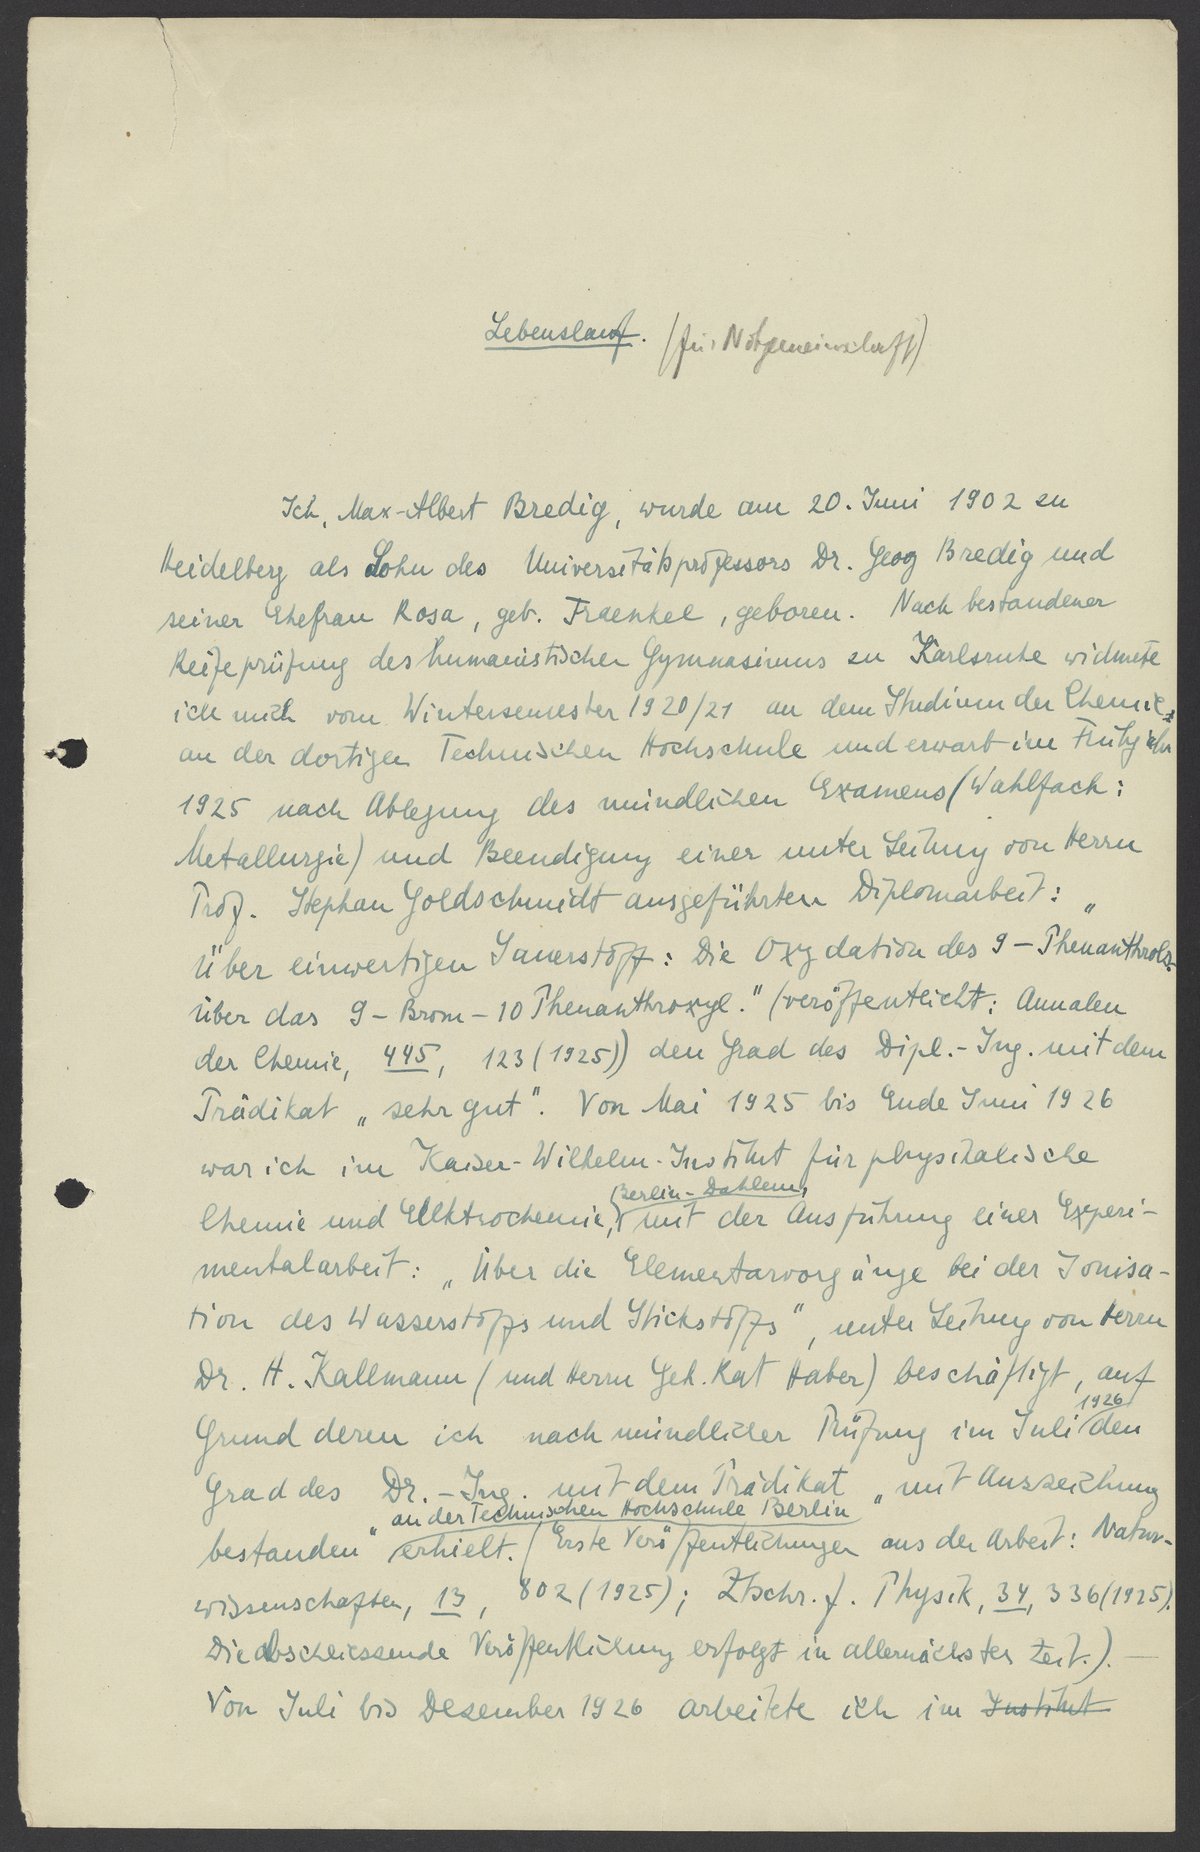 Lebenslauf. (für Notgemeinschaft)
Ich, Max-Albert Bredig, wurde am 20. Juni 1902 zu
Heidelberg als Sohn des Universitätsprofessors Dr. Georg Bredig und
seiner Ehefrau Rosa, geb. Fraenkel, geboren. Nach bestandener
Reifeprüfung des humanistischen Gymnasiums zu Karlsruhe widmete
ich mich vom Wintersemester 1920/21 an dem Studium der Chemie
an der dortigen Technischen Hochschule und erwarb im Frühjahr
1925 nach Ablegung des mündlichen Examens (Wahlfach:
Metallurgie) und Beendigung einer unter Leitung von Herrn
Prof. Stephan Goldschmidt ausgeführten Diplomarbeit: „
Über einwertigen Sauerstoff: Die Oxydation des 9-Phenanthrols
über das 9-Brom-10 Phenanthroxyl." (veröffentlicht: Annalen
der Chemie, 445, 123 (1925)) den Grad des Dipl.-Ing. mit dem
Prädikat „sehr gut". Von Mai 1925 bis Ende Juni 1926
war ich im Kaiser-Wilhelm-Institut für physikalische
(Berlin-Dahlem)
Chemie und Elektrochemie, mit der Ausführung einer Experi-
mentalarbeit: „Über die Elementarvorgänge bei der Ionisa-
tion des Wasserstoffs und Stickstoffs", unter Leitung von Herrn
Dr. H. Kallmann (und Herrn Geh. Rat Haber) beschäftigt, auf
1926
Grund deren ich nach mündlicher Prüfung im Juli den
Grad des Dr.-Ing. mit dem Prädikat „mit Auszeichnung
an der Technischen Hochschule Berlin
bestanden" erhielt. (Erste Veröffentlichungen aus der Arbeit: Natur-
wissenschaften, 13, 802 (1925); Ztschr. f. Physik, 34, 336 (1925).
Die abschliessende Veröffentlichung erfolgt in allernächster Zeit.). —
Von Juli bis Dezember 1926 arbeitete ich im Institut